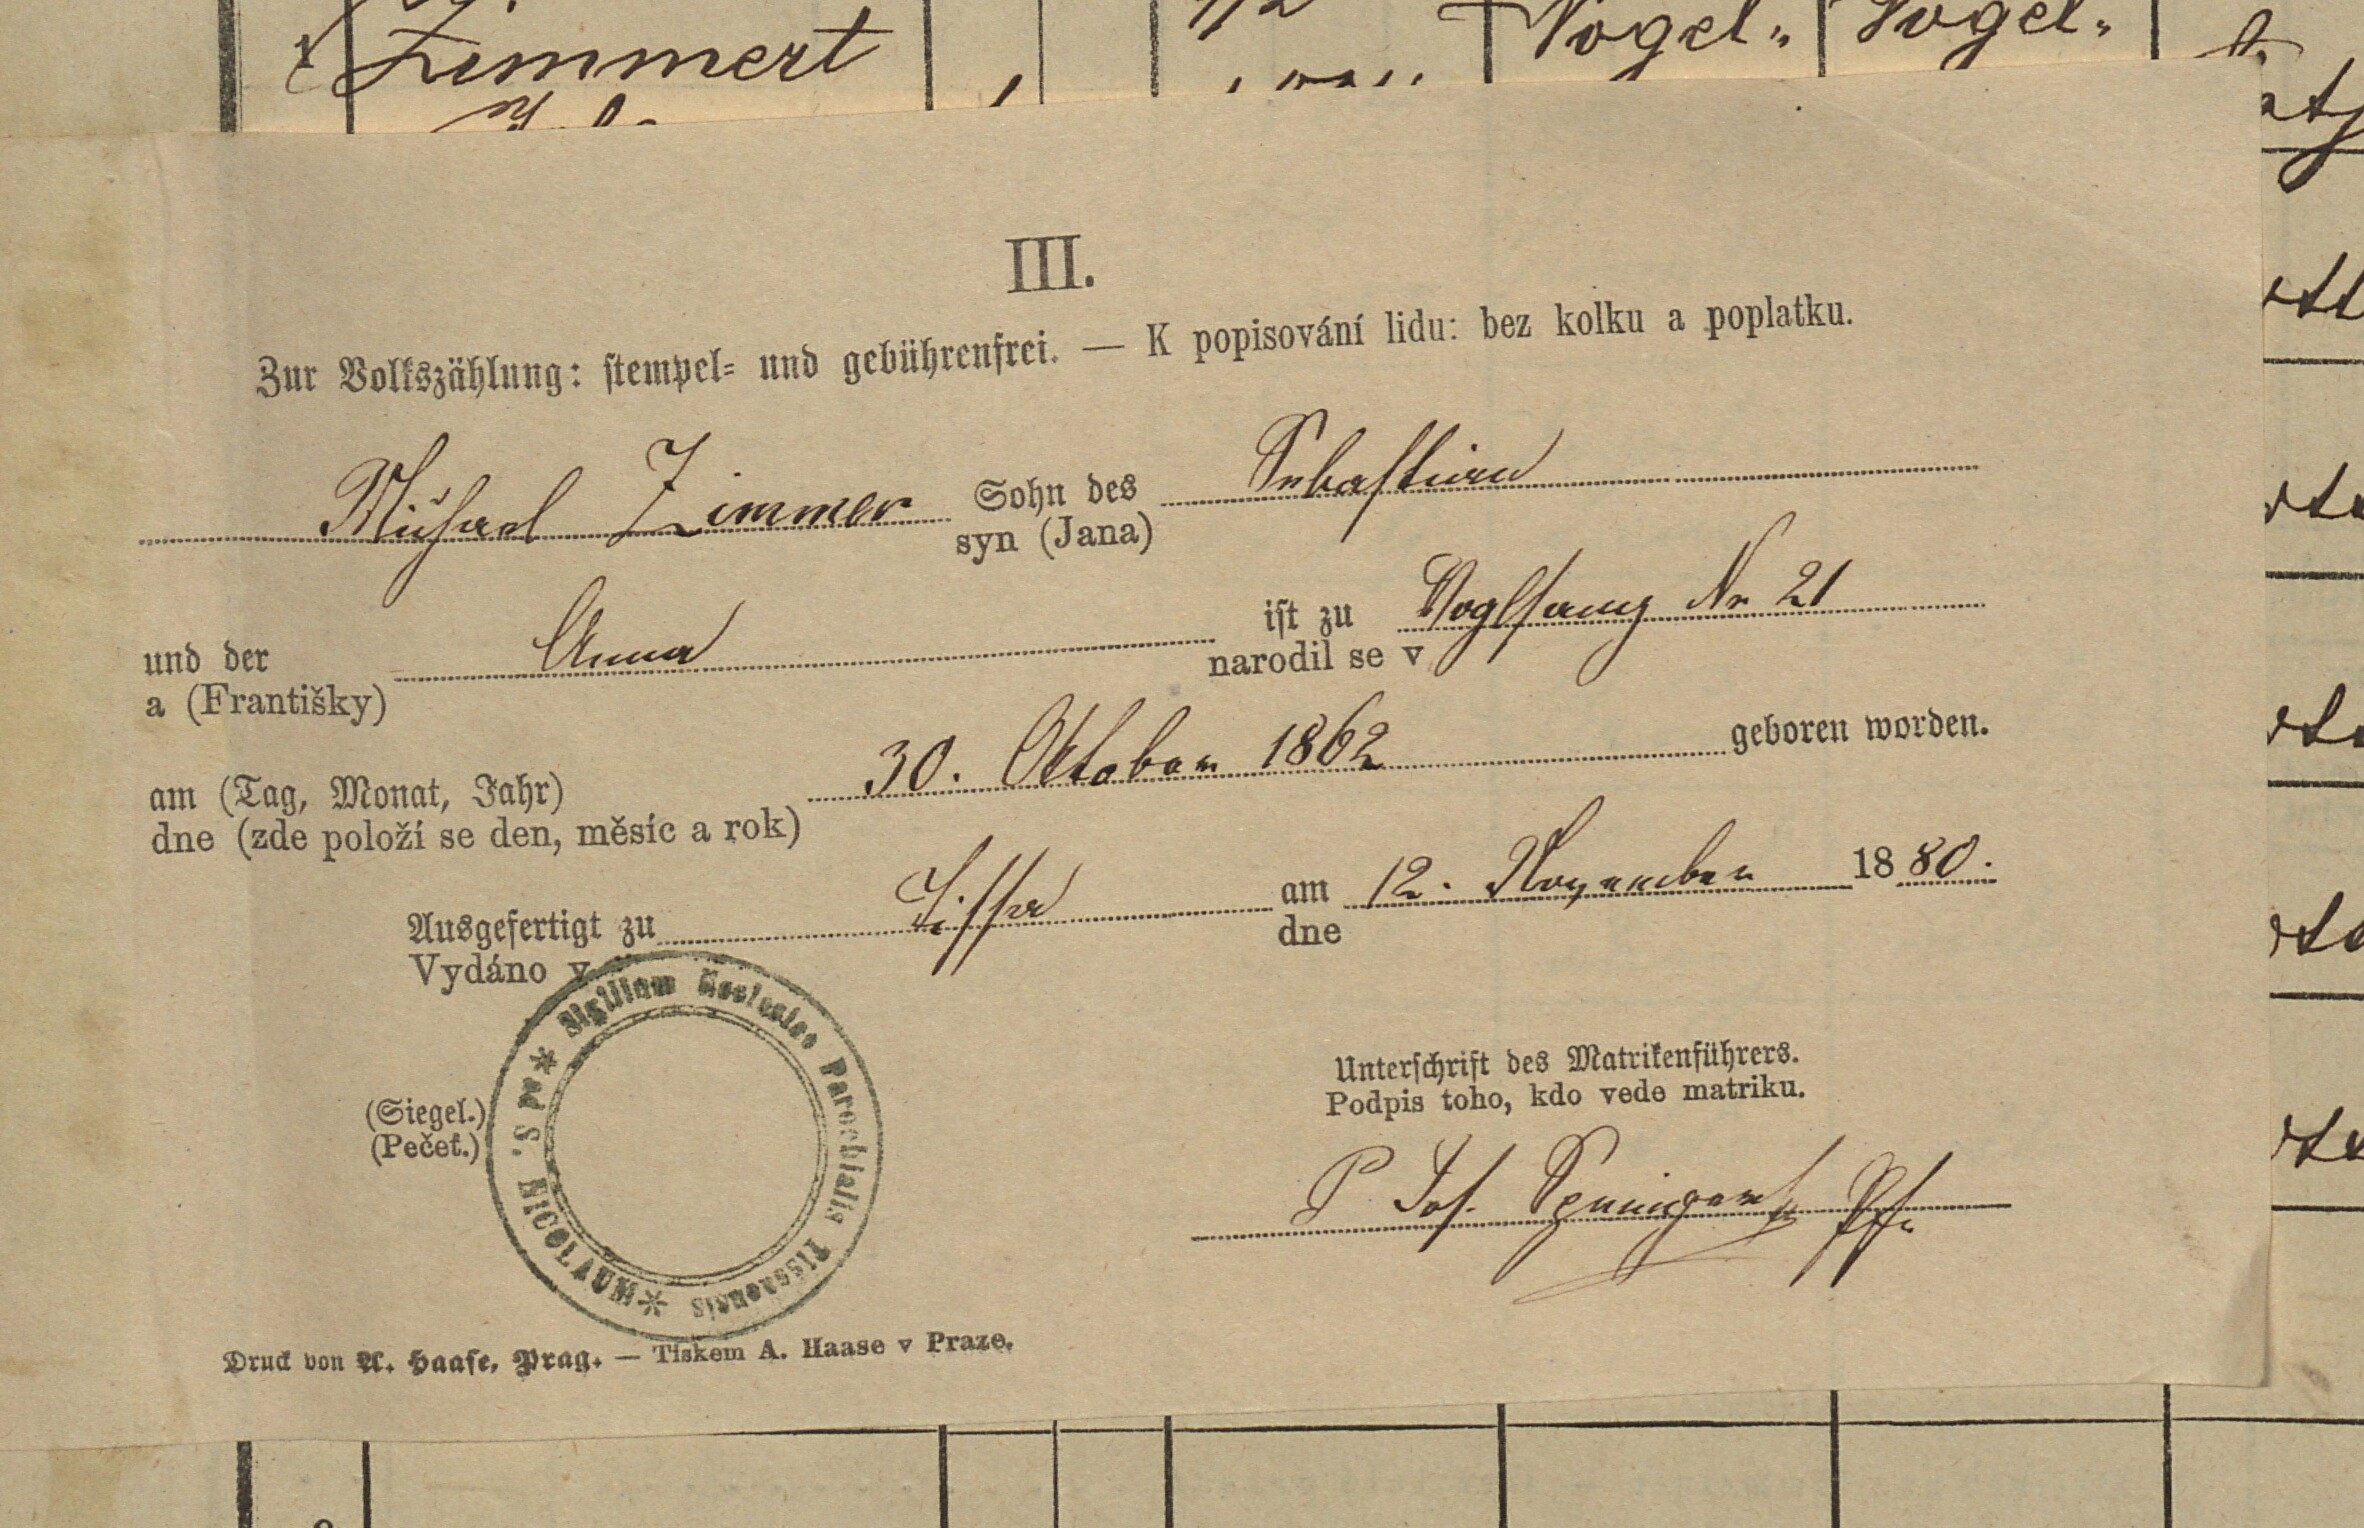 Zimmert
Vogel-
Vogel-
III.
Zur Volkszählung: stempel- und gebührenfrei. — K popisování lidu: bez kolku a poplatku.
Michael Zimmer Sohn des Sebastian
syn (Jana)
und der Anna ist zu Voglsang Nr 21
a (Františky) narodil se v
am (Tag, Monat, Jahr) 30. Oktober 1862 geboren worden.
dne (zde položí se den, měsíc a rok)
Ausgefertigt zu Tissa am 12. November 1880.
Vydáno v dne
Sigillum Ecclesiae Parochialis Tissaensis
ad S. NICOLAUM
(Siegel.)
(Pečeť.)
Unterschrift des Matrikenführers.
Podpis toho, kdo vede matriku.
P. Jos. Pfr
Druck von A. Haase, Prag. — Tiskem A. Haase v Praze.